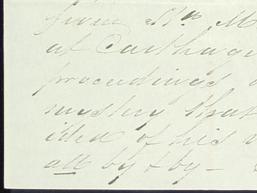 from Br M
at Carthage
proceedings
idea of his
all by & by –